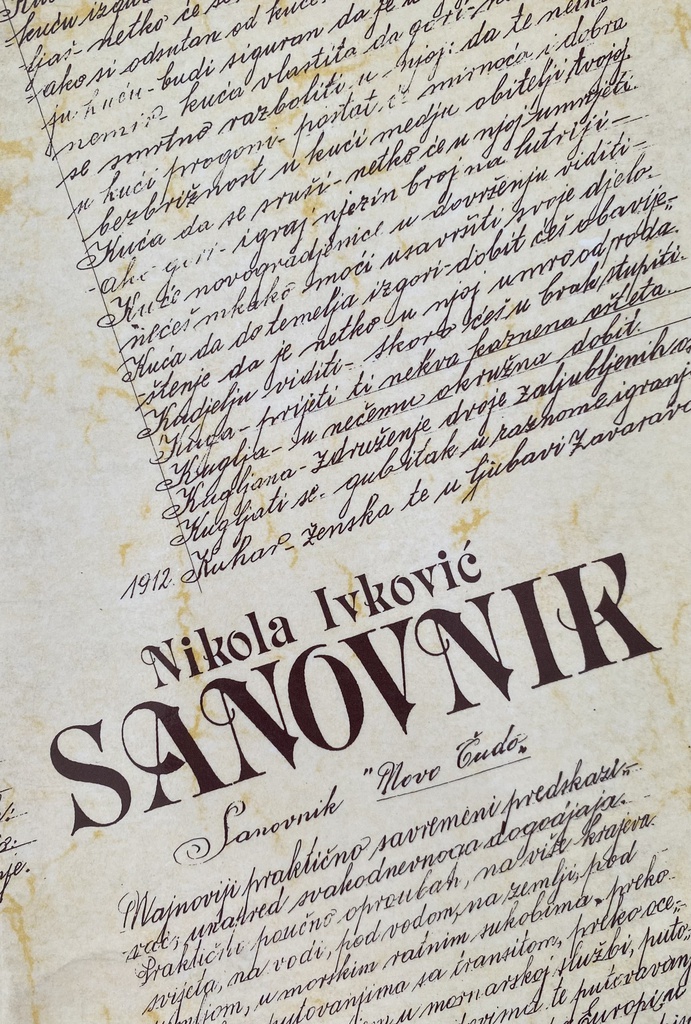 kuću izgu
ljaš- netko će
ako si odsutan od kuće
ju kuću- budi siguran da je
nemir- kuća vlastita da gori-
se smrtno razboliti u njoj: da te
u kući progoni- postat će mirnoća i dobra
bezbrižnost u kući medju obitelji tvojoj
Kuća da se sruši- netko će u njoj umrijeti.
-ako gori- igraj njezin broj na lutriji-
Kuće novogradjenice u dovršenju viditi-
nećeš nikako moći usavršiti svoje djelo.
Kuća da dotemelja izgori- dobit ćeš obavije„
-štenje da je netko u njoj umro od roda.
Kudjelju viditi- skoro ćeš u brak stupiti.
Kuga- prijeti ti nekva kaznena ošteta.
Kuglja- su nečemu okružna dobit.
Kugljana- združenje dvoje zaljubljenih
Kugljati se- gubitak u raznome igranj
1912. Kuhar- ženska te u ljubavi zavarava
Nikola Ivković
SANOVNIK
Sanovnik "Novo Čudo„
Najnoviji praktično savremeni predskazi„
-vač, unapred svakodnevnoga dogodjaja.
Praktični poučno oproubah, na više krajeva
svijeta, na vodi, pod vodom, na zemlji, pod
zemljom, u morskim ratnim sukobima, preko
putovanjima sa tranšitom, preko oce„
u mornarskoj službi, puto„
te putovavan
Europi u
je.